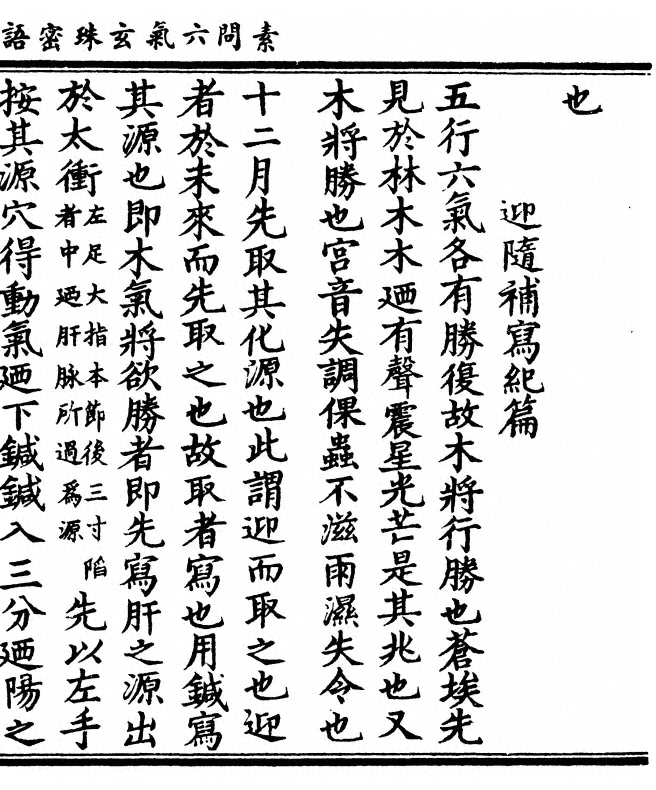 素問六氣玄珠密語
也
迎隨補寫紀篇
五行六氣各有勝復故木將行勝也蒼埃先
見於林木木廼有聲震星光芒是其兆也又
木將勝也宮音失調倮蟲不滋雨濕失令也
十二月先取其化源也此謂迎而取之也迎
者於未來而先取之也故取者寫也用鍼寫
其源也即木氣將欲勝者即先寫肝之源出
於太衝左足大指本節後三寸陷者中廼肝脉所過爲源先以左手
按其源穴得動氣廼下鍼鍼入三分廼陽之